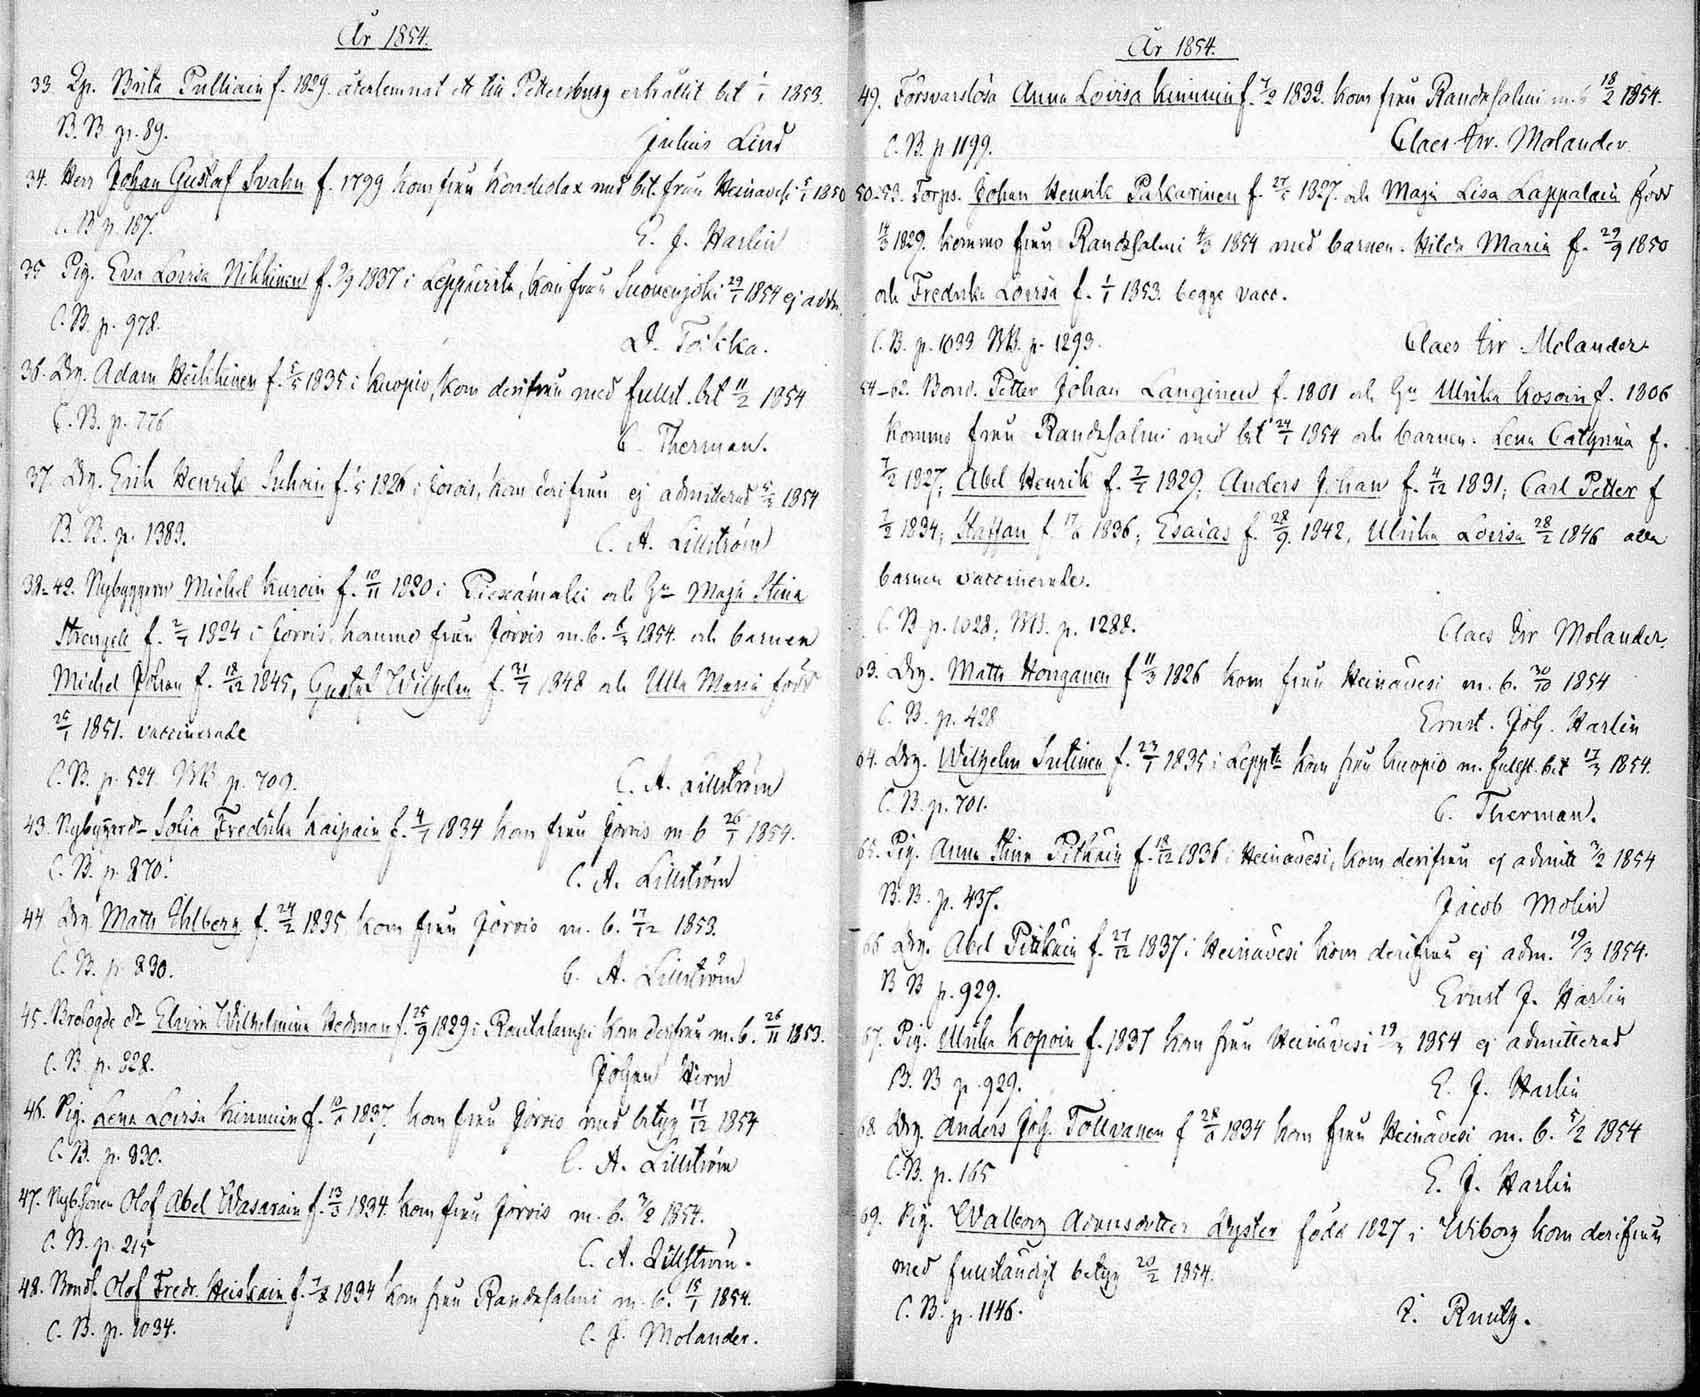 År 1854.
33. Brita Pulliain f. 1829. återlemnat ett till Pettersburg erhållit bet 1853.
B.B p. 89.
Julius Lind
34. Herr Johan Gustaf Svahn f. 1799 kom från Kondiolax med bet. från Heinävesi 1850
C. B p. 187.
E. J. Harlin
35 Pig. Eva Lovisa Nikkinen f. 1837 i Leppävirta, kom från Suonenjoki 29/1 1854 ej adm.
C. B. p. 978.
36. Drg. Adam Heikkinen f. 1835 i Kuopio, kom derifrån med fullst. bet 11/2 1854
C. B. p. 776
C. Therman.
37. Drg. Erik Henrik f. 1826 i Jorois, kom derifrån ej admitterad 1854
B. B. p. 1383.
C. A. Lillström
38-42. Nybyggaren Michel Kuroin f. 10/11 1820 i Piexämäki och Hu Maja Stina
Strengell f. 2/1 1824 i Jorois komma från Jorois m. b. 1854. och barnen
Michel Johan f. 18/12 1845, Gustaf Wilhelm f. 21/7 1848 och Ulla Maria född
25/1 1851. vaccinerade
C. B. p. 524. BB p. 709.
C. A. Lillström
43. Sofia Fredrika Kaipain f. 4/1 1834 kom från Jorois m b 26/1 1854.
C. B. p. 870.
C. A. Lillström
44 Drg. Matts Uhlberg f. 24/2 1835 kom från Jorois m. b. 17/12 1853.
C. B. p. 830.
C. A. Lillström
45. Wilhelmina Hedman f. 25/9 1829 i Rautalampi kom derifrån m. b. 26/11 1853.
C. B. p. 828.
Johan Hirn
46. Pig. Lena Lovisa Kinnuin f. 1837 kom från Jorois med betyg 17/12 1854
C. B. p. 830.
C. A. Lillström
47. Olof Abel Wasarain f. 13/3 1834 kom från Jorois m. b. 1854.
C. B. p. 215
C. A. Lillström.
48. Bonds. Olof Fredr. Heiskain f. 1834 kom från Randasalmi m. b. 15/1 1854.
C. B. p. 1034.
C. J. Molander.
År 1854.
49. Försvarslösa Anna Lovisa Kinnuin f. 1833. kom från Randasalmi m. b 18/2 1854.
C. B. p 1199.
Claes Molander
50-53. Torp. Johan Henrik Pakarinen f. 1827. och Maja Lisa Lappalain född
1829. komma från Randasalmi 4/3 1854 med barnen. Hilda Maria f. 29/9 1850
och Fredrika Lovisa f. 1/1 1853. begge vacc.
C. B. p. 1033 BB. p. 1293.
Claes Molander
54-62. Bond. Petter Johan Langinen f. 1801 och Hu Ulrika Kosoin f. 1806
komma från Randasalmi med bet 24/1 1854 och barnen. Lena Catharina f.
1827, Abel Henrik f. 1829, Anders Johan f. 4/12 1831; Carl Petter f
1834; Staffan f. 1836; Esaias f. 28/9 1842, Ulrika Lovisa 28/2 1846 alla
barnen vaccinerade.
C. B p. 1028; BB. p. 1288.
Claes Molander
63. Drg. Matts Honganen f 11/3 1826 kom från Heinävesi m. b. 30/10 1854
C. B. p. 428
Ernst. Joh. Harlin
64. Drg. Wilhelm Sutinen f. 23/1 1835 i kom från Kuopio m. fullst. bet 17/3 1854.
C. B. p. 701.
C. Therman.
65. Pig. Anna Stina Pitkäin f. 18/12 1836 i Heinävesi, kom derifrån ej admitt 1854
B. B. p. 437.
Jacob Molin
66 Drg. Abel Pitkäin f. 27/12 1837 i Heinävesi kom derifrån ej adm. 19/3 1854.
B B p. 929.
Ernst J. Harlin
67. Pig. Ulrika Kopoin f. 1837 kom från Heinävesi 1854 ej admitterad
B. B p. 929.
E. J. Harlin
68. Drg. Anders Joh. Tollvanen f 1834 kom från Heinävesi m. b. 5/2 1854
C. B. p. 165
E. J. Harlin
69. Pig. Walborg född 1827 i Wiborg kom derifrån
med fullständigt betyg 20/2 1854.
C. B. p. 1146.